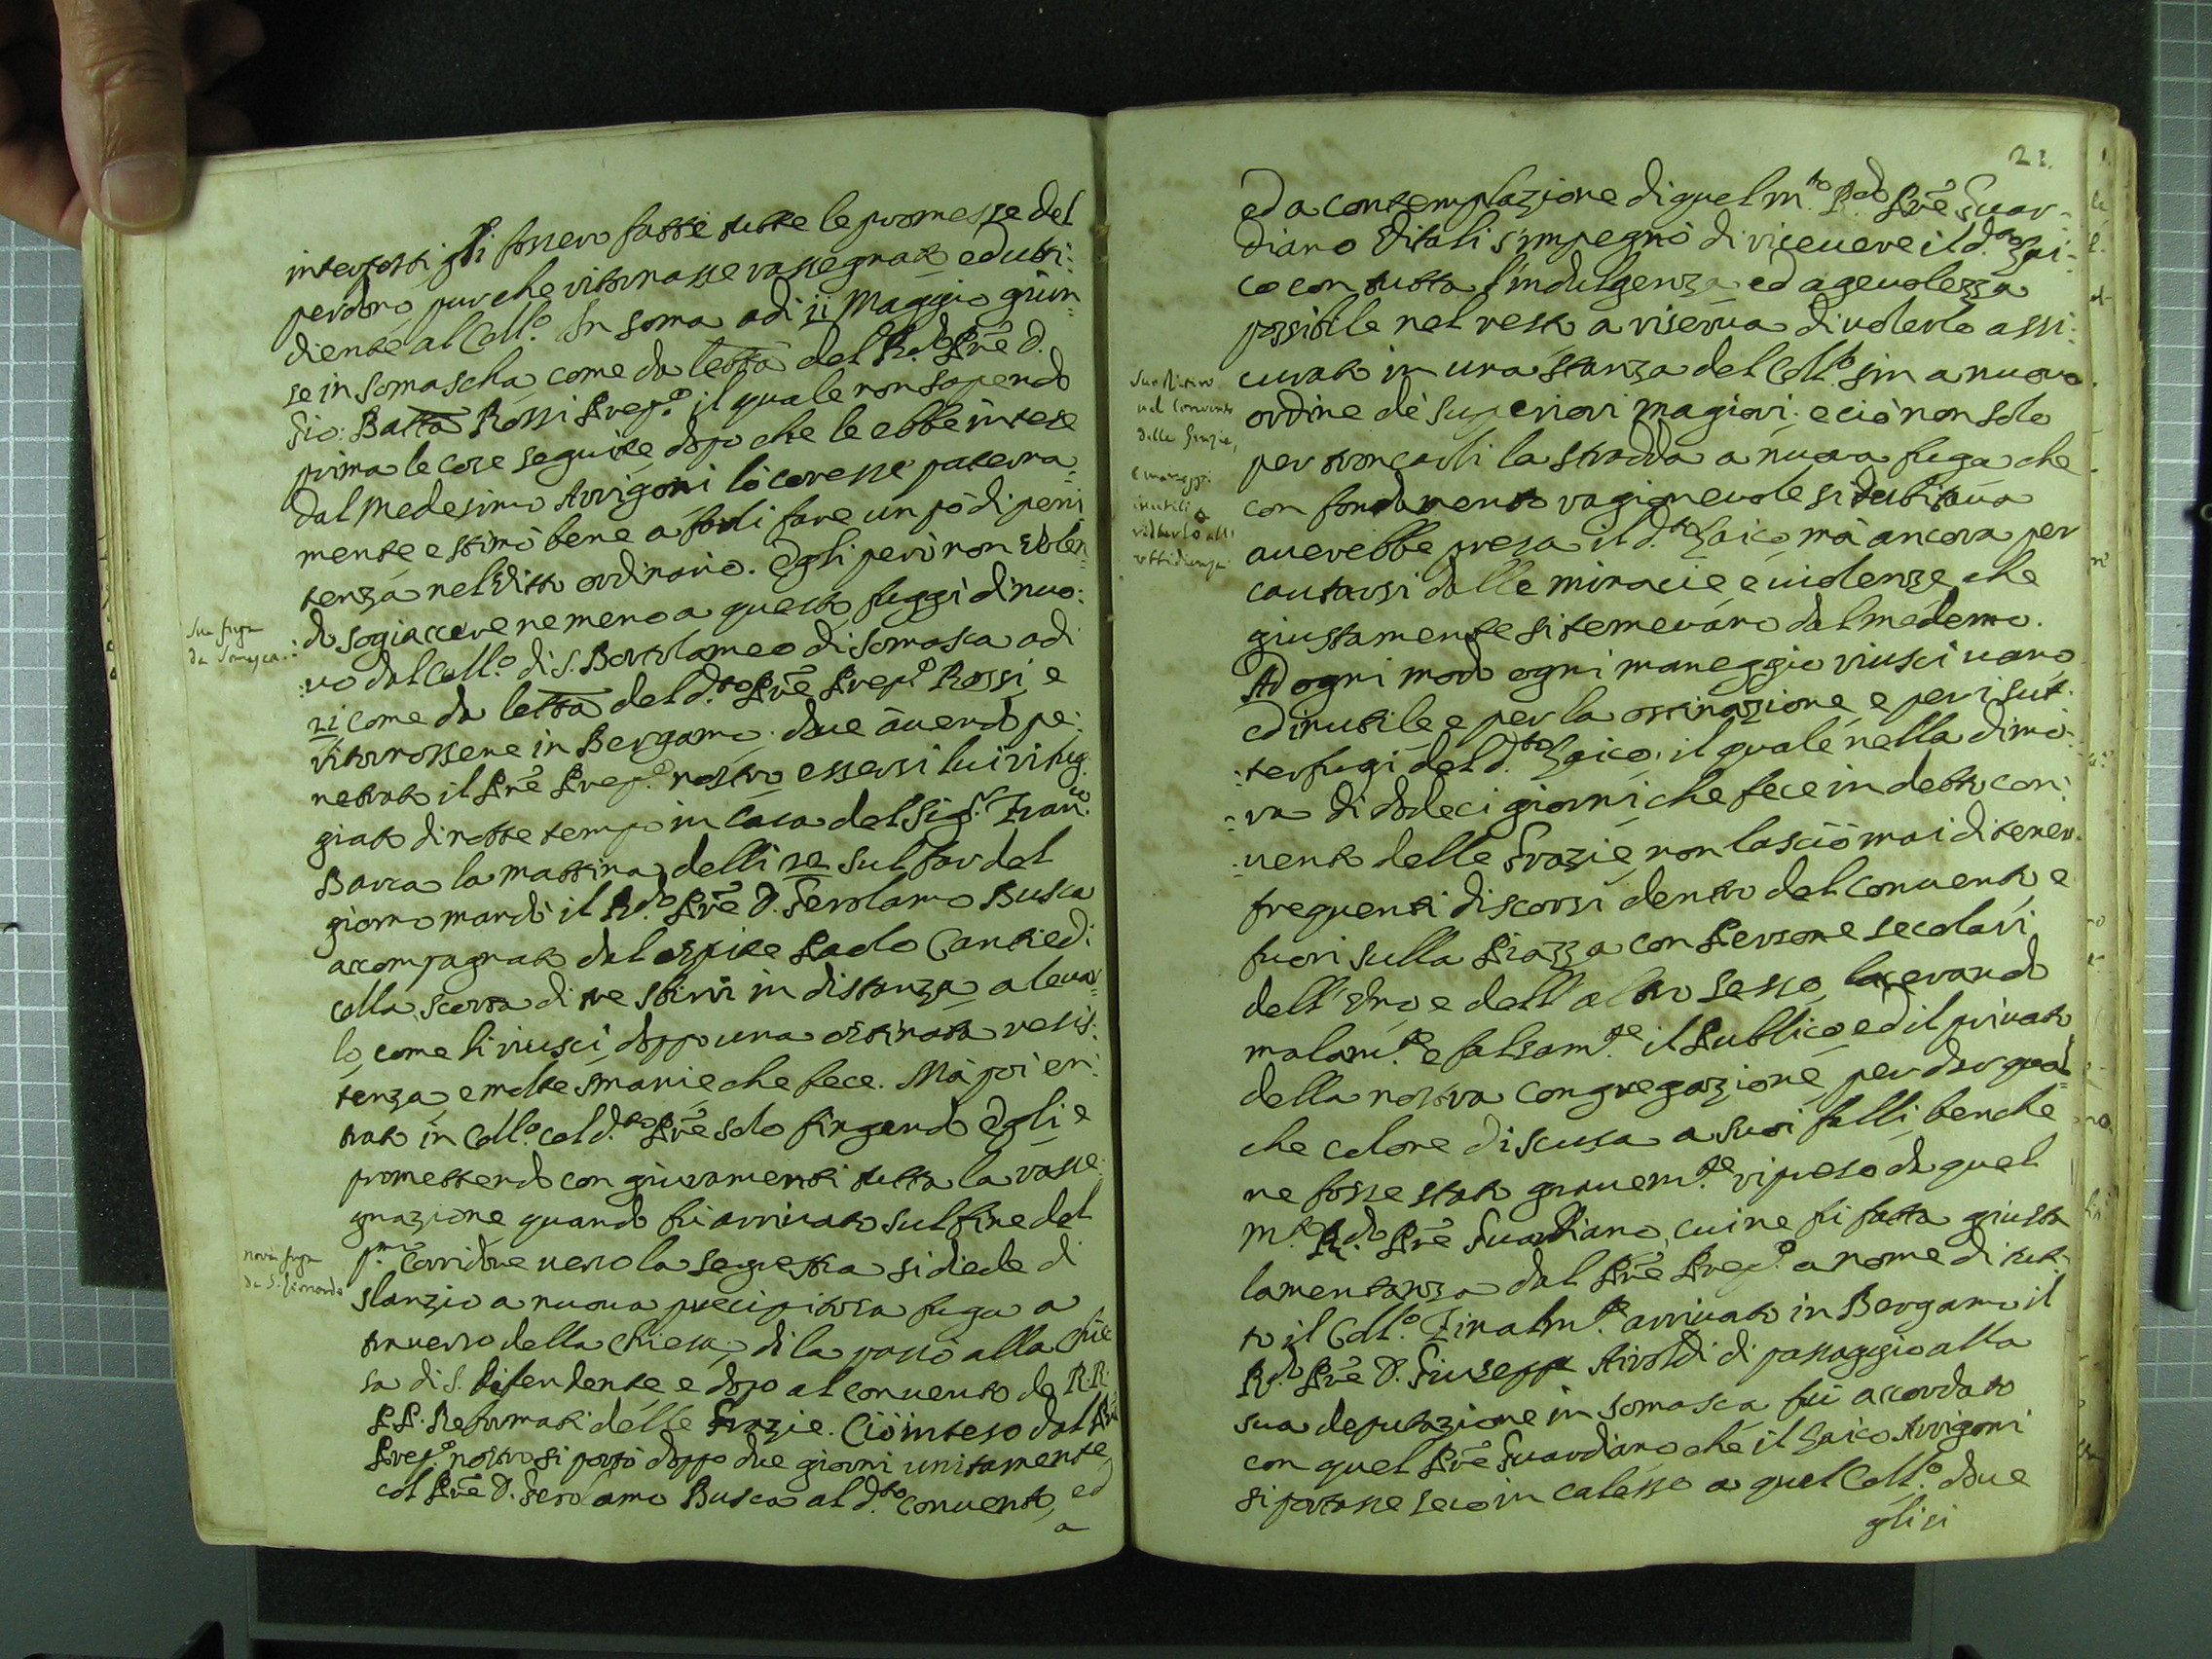 interposti gli fossero fatte tutte le promesse del
perdono, pur che ritornasse rassegnato ed ubi:
diente al Coll.o In soma adi 11 Maggio giun
se in Somascha, come da lettã del R.do Prẽ D.
Gio: Battã Rossi Prep.o il quale non sapendo
prima le cose seguite dopo che le ebbe intese
dal medesimo Arrigoni lo coresse paterna=
mente e stimò bene a farli fare un pò di peni
tenza nel Vitto ordinario. Egli però non volen=
do sogiaccere ne meno a questo fuggì di nuo:
:vo dal Coll.o di S. Bortolameo di Somasca adi
21 come da lettã del d.to Prẽ Prep.o Rossi, e
ritornossene in Bergamo. dove avendo pe:
netrato il Prẽ Prep.o nostro essersi lui rifug:
giato di notte tempo in Casa del Sig.r Fran.co
Barca la mattina delli 22 sul far del
giorno mandò il R.do Prẽ D. Gerolamo Busca
accompagnato dal ospite Paolo Cantiedi
colla scorta di tre sbirri in distanza a levar=
lo, come li riuscì doppo una ostinata resis:
tenza, e molte smanie che fece. Mà poi en:
trato in Coll.o col d.to Prẽ solo fingendo Egli, e
promettendo con giuramenti tutta la rasse:
gnazione quando fù arrivato sul fine del
p.mo Corridore verso la segretta si diede di
slanzio a nuova precipitosa fuga a
traverso della Chiesa, di la passò alla Chie
sa di S. Difendente, e dopo al convento de R.R.
P.P. Reformati delle Grazie. Ciò inteso dal Prẽ
Prep.o nostro si portò doppo due giorni unitamente
col Prẽ D. Gerolamo Busca al d.to convento, ed
a
Sua fuga
da Somasca.
nova fuga
da S. Lionardo
21.
ed a contemplazione di quel M.to R.do Prẽ Guar=
diano Vitali s'impegnò di ricevere il d.to Lai=
co con tutta l'indulgenza ed agevolezza
possibile nel resto a riserva di volerlo assi:
curato in una stanza del Coll.o sin a nuovo
ordine de superiori magiori: e ciò non solo
per troncarli la stradda a nuova fuga che
con fondamento ragionevole si dubitava
averebbe presa il d.to Laico, mà ancora per
cautarsi dalle minacie e violenze, che
giustamente si temevano dal medemo.
Ad ogni modo ogni maneggio riuscì vano
ed inutile, e per la ostinazione, e per i sut:
:terfugi del d.to Laico, il quale nella dimo:
:ra di dodeci giorni, che fece in detto con:
:vento delle Grazie, non lasciò mai di tener
frequenti discorsi dentro del convento, e
fuori sulla Piazza con Persone secolari
dell'Uno e dell'altro sesso, lacerando
malam.te e falsam.te il Publico, ed il privato
della nostra congregazione, per dar qual=
che colore di scusa a suoi falli, benche
ne fosse stato gravem.te ripreso da quel
M.to R.do Prẽ Guardiano, cui ne fù fatta giusta
lamentanza dal Prẽ Prep.o a nome di tut:
to il Coll.o Finalm.te arrivato in Bergamo il
R.do Prẽ D. Giuseppe Rivoldi di passaggio alla
sua deputazione in Somasca fù accordato
con quel Prẽ Guardiano che il Laico Arrigoni
si portasse seco in calesso a quel Coll.o dove
gli si
Suo ritiro
nel Convento
delle Grazie,
e maneggi
inutili a
ridurlo all'
ubbidienza